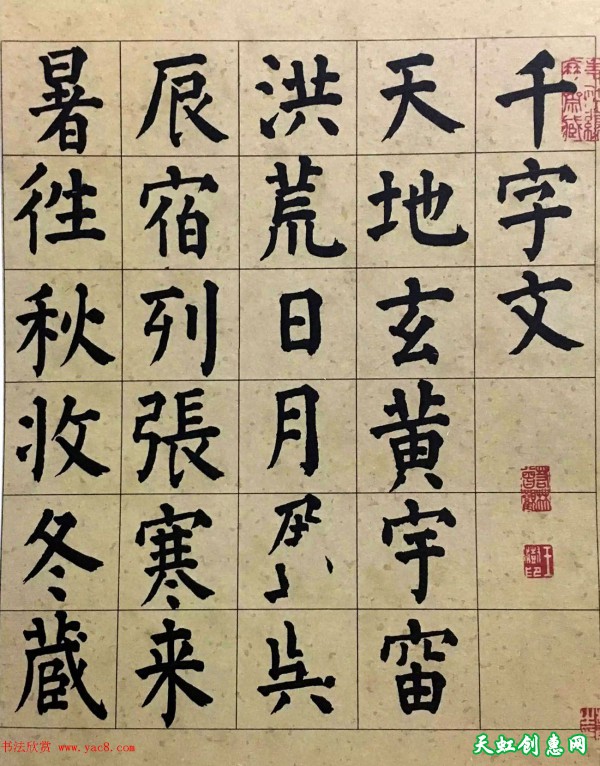 千字文
天地玄黄宇宙
洪荒日月
辰宿列張寒来
暑徃秋收冬蔵
书法欣赏 www.yac8.com
天虹创惠网